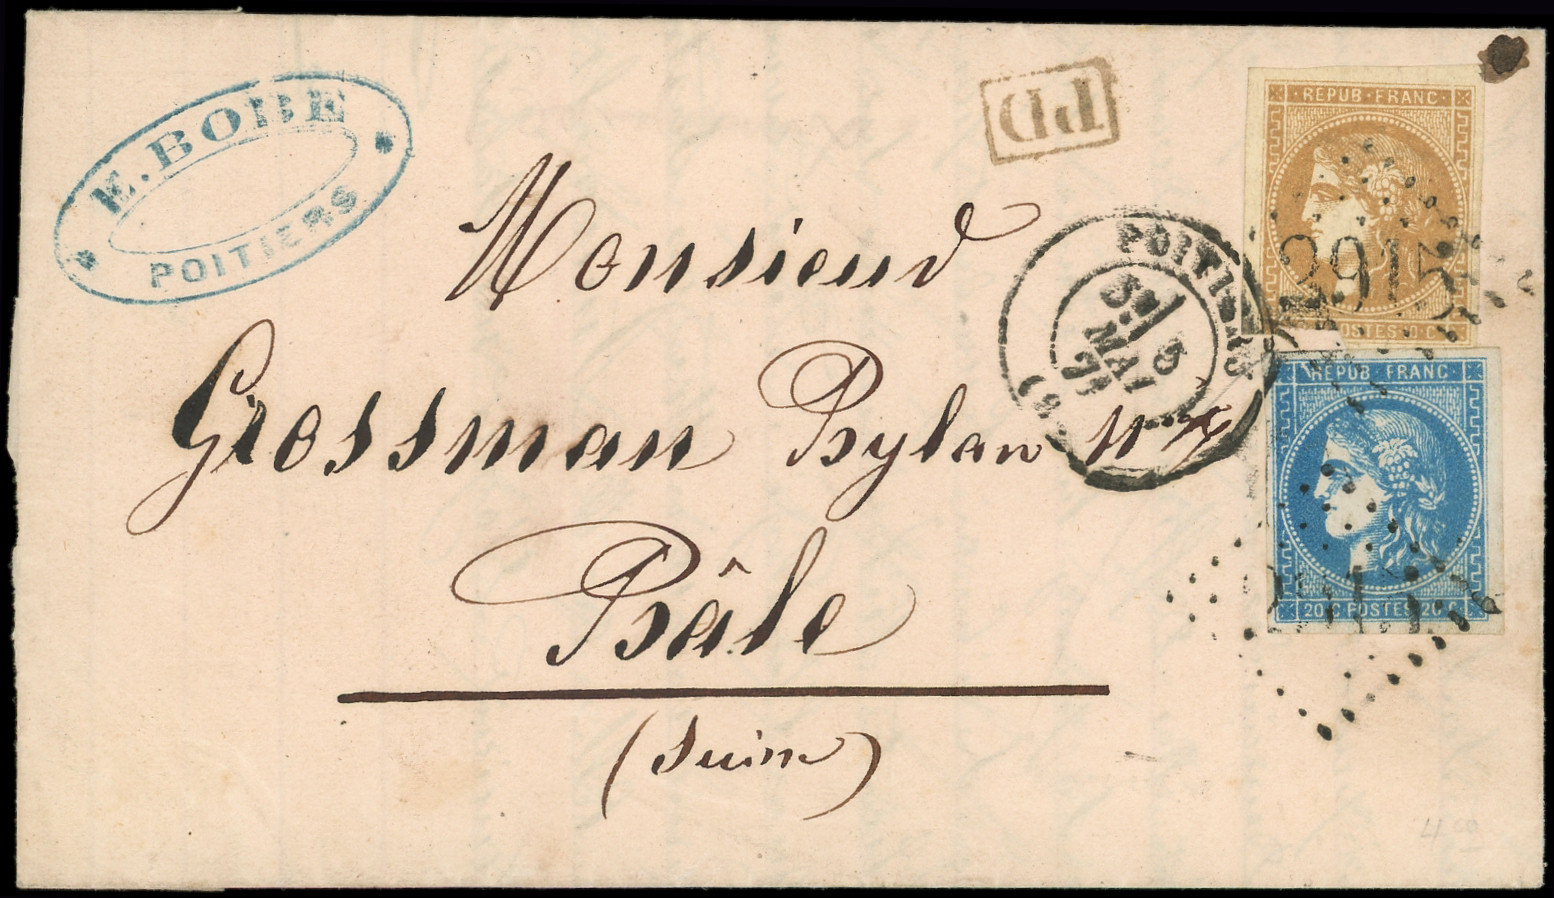 E. BOBE
POITIERS
PD
REPUB · FRANC
2915
POSTES 10 C
POITIERS
5
MAI
71
REPUB FRANC
20 C POSTES 20 C
Monsieur
Grossman Rylan N°
Bâle
(Suisse)